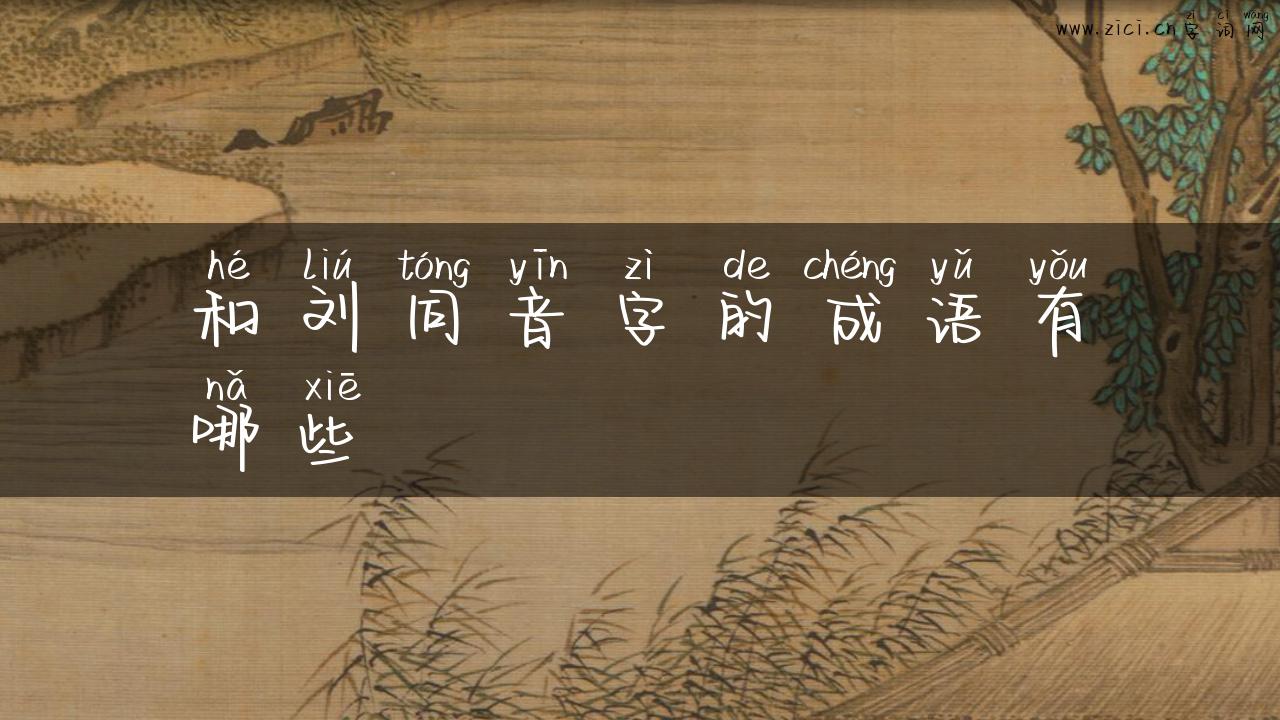 zì cí wǎng
www.zici.cn字词网
hé liú tóng yīn zì de chéng yǔ yǒu
和刘同音字的成语有
nǎ xiē
哪些